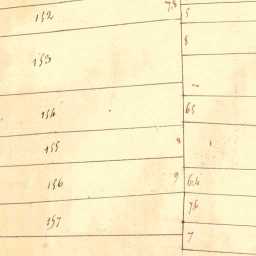 152
153
154
155
156
157
78
8
9
5
8
65
64
76
7